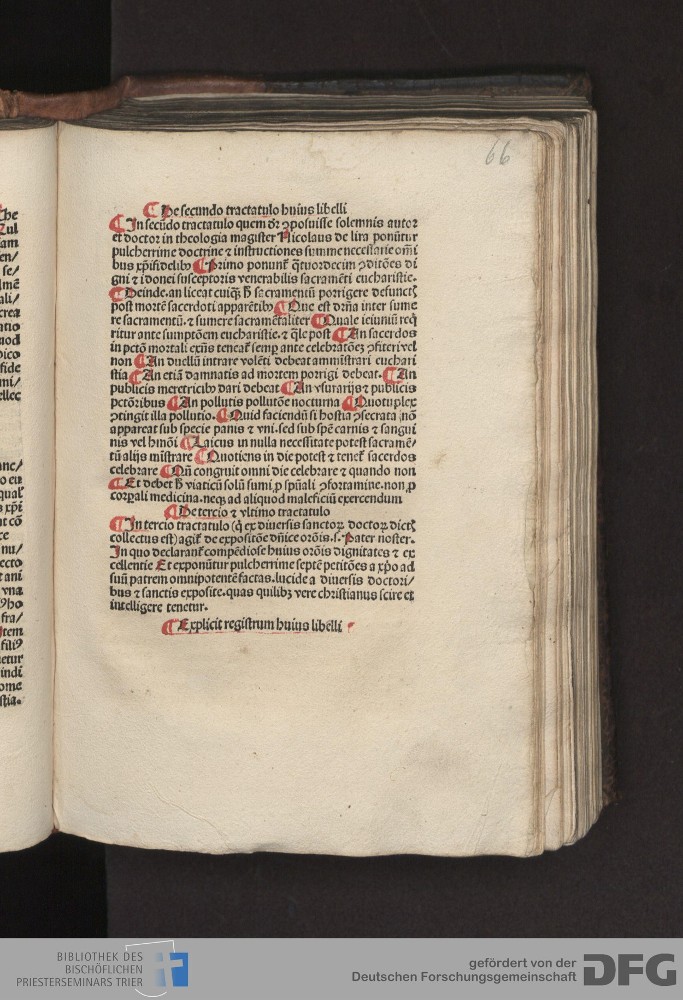 66
¶ De secundo tractatulo huius libelli
¶ In secūdo tractatulo quem dr̄ ꝯposuisse solemnis autor
et doctor in theologia magister Nicolaus de lira ponūtur
pulcherrime doctrine ⁊ instructiones summe necessarie om̄i
bus xp̄ifidelibꝰ ¶ Primo ponunt̉ q̈tuordecim ꝯditōes di
gni ⁊ idonei susceptoris venerabilis sacramēti eucharistie.
¶ Deinde. an liceat cuiqꝫ h̄ sacramentū porrigere defunctꝭ
post mortē sacerdoti apparētibꝰ ¶ Que est dr̄na inter sume
re sacramentū. ⁊ sumere sacramētaliter ¶ Quale ieiuniū req̇
ritur ante sumptōem eucharistie. ⁊ q̈le post ¶ An sacerdos
in pctō mortali exn̄s teneat̉ semꝑ ante celebratōeꝫ ꝯfiteri vel
non ¶ An duellū intrare volēti debeat amministrari euchari
stia ¶ An etiā damnatis ad mortem porrigi debeat. ¶ An
publicis meretricibꝰ dari debeat ¶ An vsurarijs ⁊ publicis
pctōribus ¶ An pollutis pollutōe nocturna ¶ Quotuplex
ꝯtingit illa pollutio. ¶ Quid faciendū si hostia ꝯsecrata nō
appareat sub specie panis ⁊ vni. sed sub spē carnis ⁊ sangui
nis vel hmōi ¶ Laicus in nulla necessitate potest sacramē/
tū alijs mīstrare ¶ Quotiens in die potest ⁊ tenet̉ sacerdos
celebrare ¶ Qn̄ congruit omni die celebrare ⁊ quando non
¶ Et debet h̄ viaticū solū sumi ꝓ sp̄uali ꝯfortamine. non ꝓ
corꝑali medicina. neqꝫ ad aliquod maleficiū exercendum
¶ De tercio ⁊ vltimo tractatulo
¶ In tercio tractatulo (q̇ ex diuersis sanctoꝝ doctoꝝ dictꝭ
collectus est) agit̉ de expositōe dn̄ice orōis. s. Pater noster.
In quo declarant̉ compēdiose huius orōis dignitates ⁊ ex
cellentie Et exponūtur pulcherrime septē petitōes a xp̄o ad
suū patrem omnipotentē factas. lucide a diuersis doctori/
bus ⁊ sanctis exposite. quas quilibꝫ vere christianus scire et
intelligere tenetur.
¶ Explicit registrum huius libelli
BIBLIOTHEK DES
BISCHÖFLICHEN
PRIESTERSEMINARS TRIER
gefördert von der
Deutschen Forschungsgemeinschaft
DFG